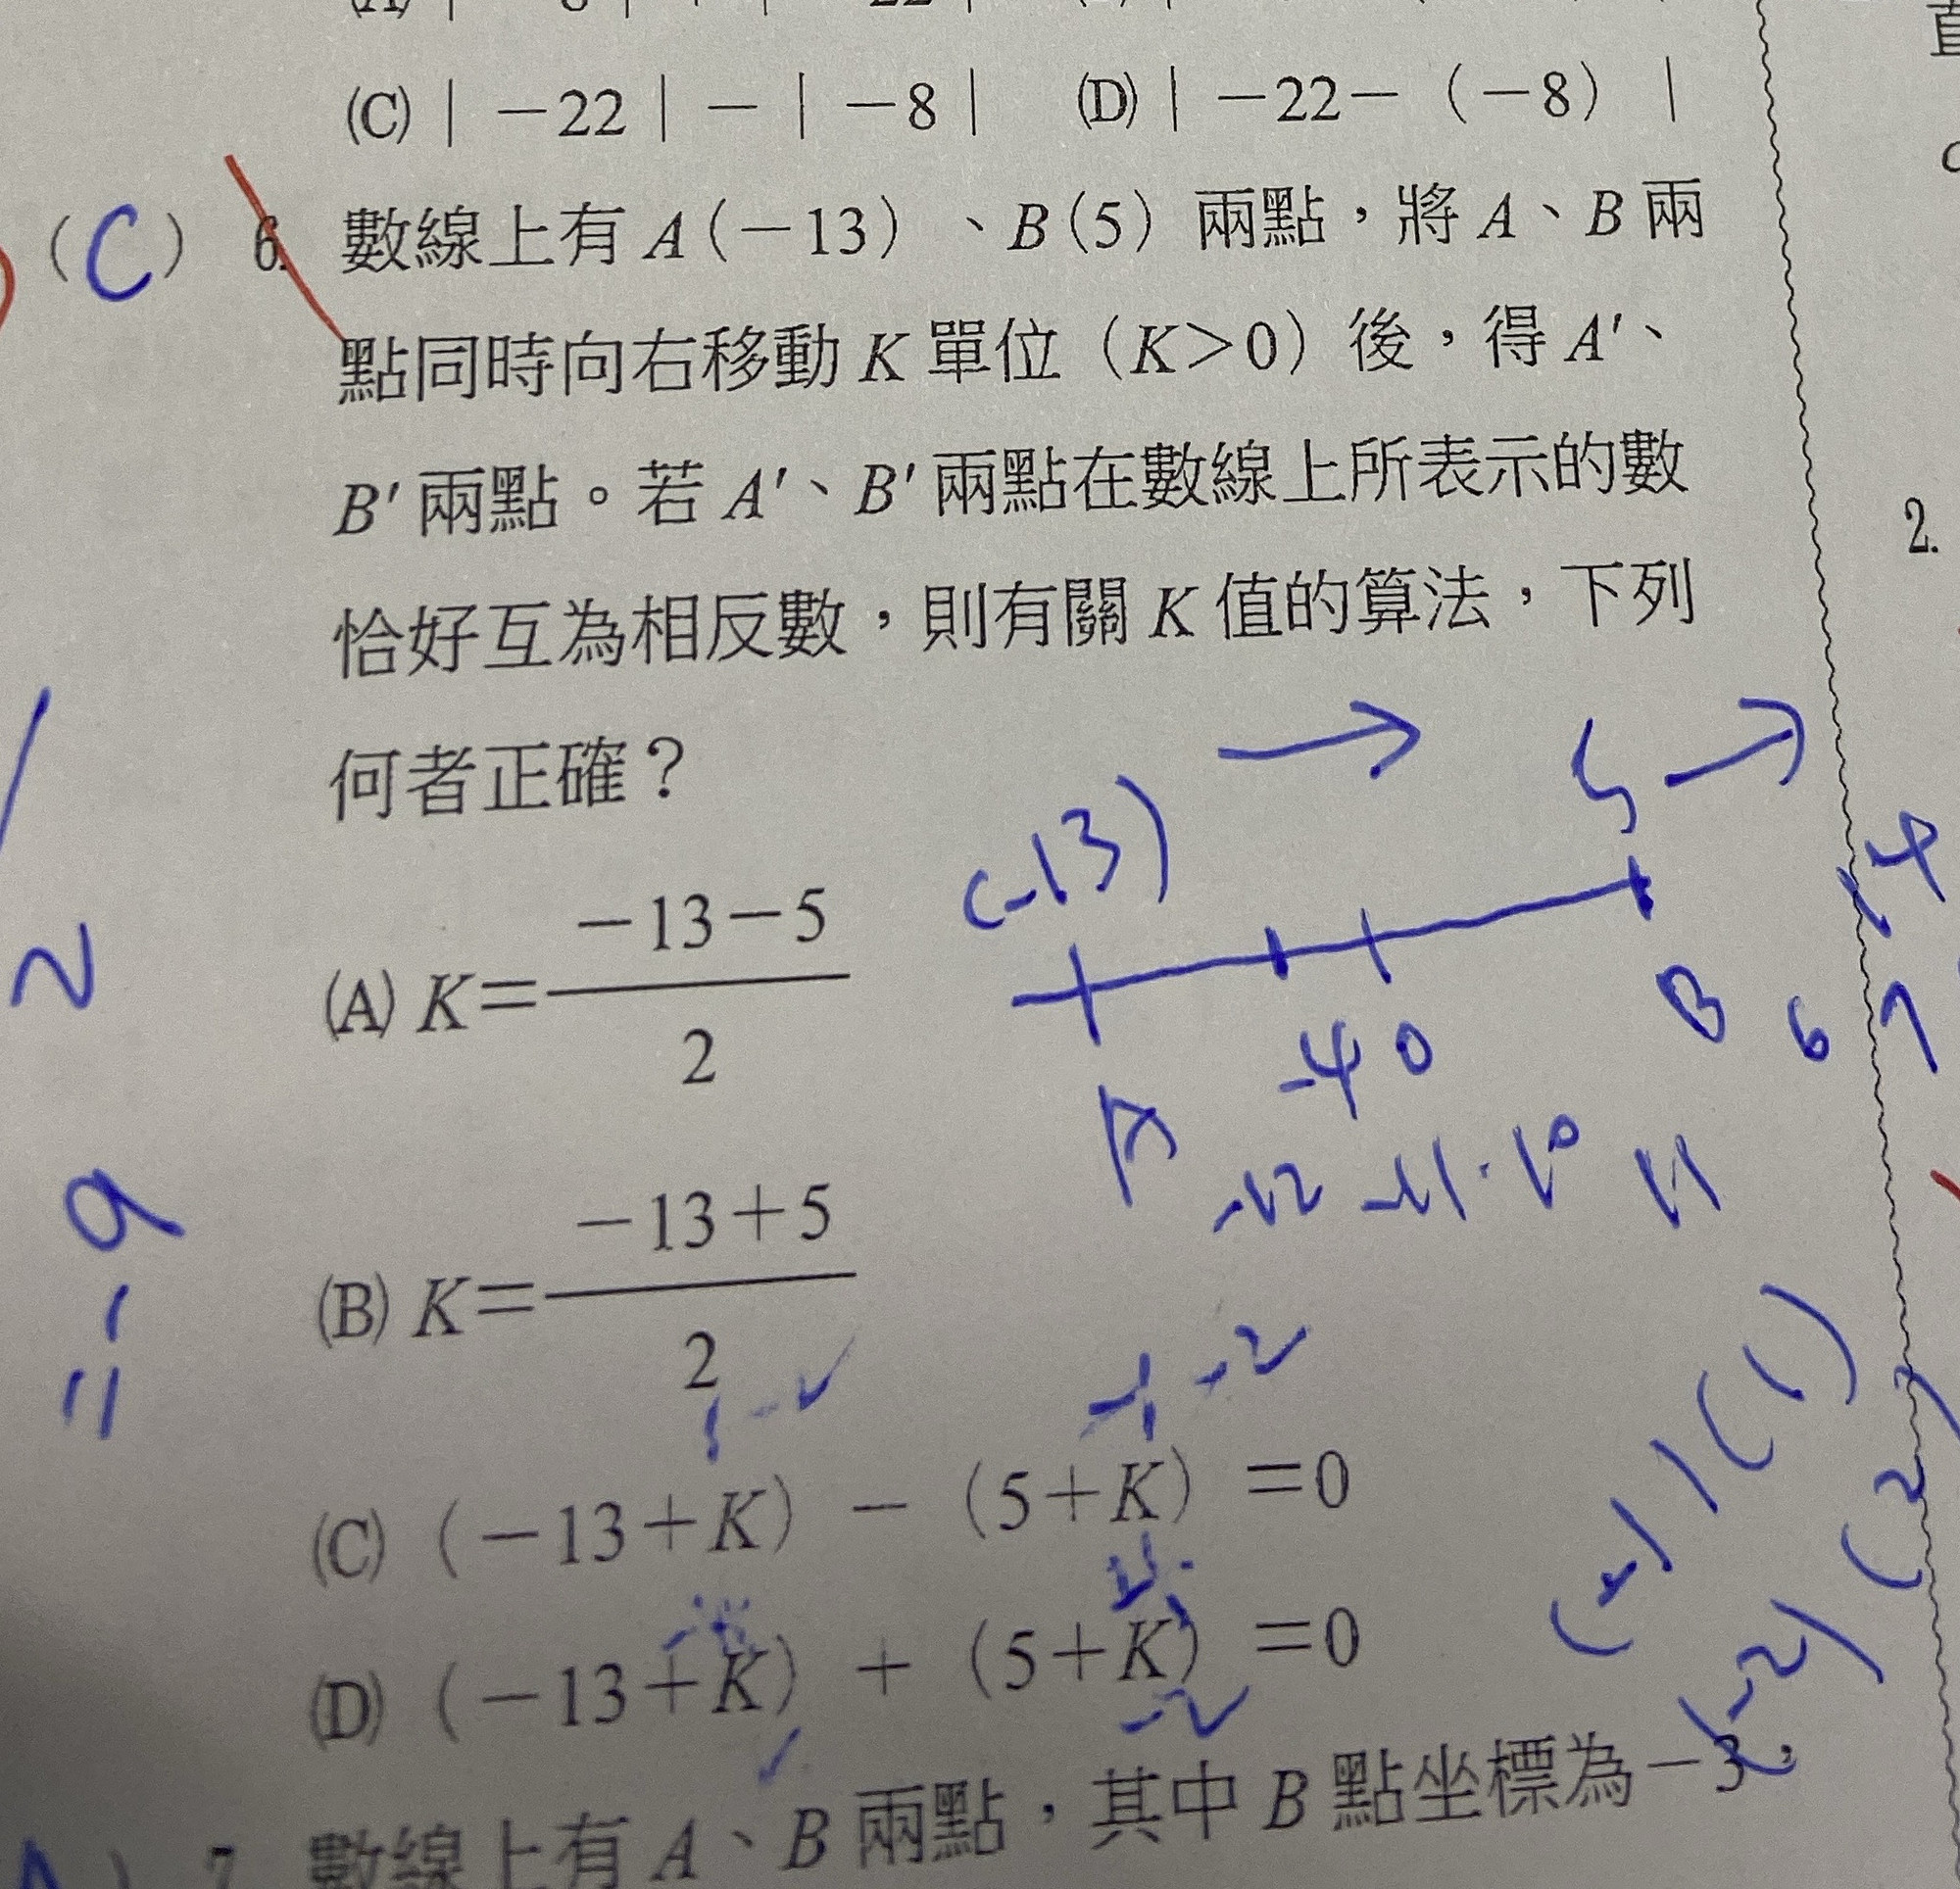 (C)│－22│－│－8│ (D)│－22－（－8）│
(C) 6. 數線上有 A（－13）、B（5）兩點，將 A、B 兩
點同時向右移動 K 單位（K＞0）後，得 A'、
B' 兩點。若 A'、B' 兩點在數線上所表示的數
恰好互為相反數，則有關 K 值的算法，下列
何者正確？
5
(-13)
14
－13－5
(A) K＝
2
B 6 7
-4 0
A
-12 -11 . 10 11
－13＋5
(B) K＝
2
1 -2
-1 -2
(C)（－13＋K）－（5＋K）＝0
(-1) (1)
(D)（－13＋K）＋（5＋K）＝0
-2
(-2) (2)
7. 數線上有 A、B 兩點，其中 B 點坐標為－3，
2.